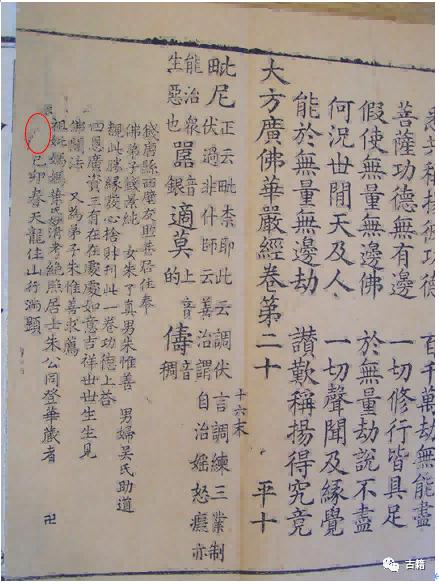 悉共稱揚彼功德 百千萬劫無能盡
菩薩功德無有邊 一切修行皆具足
假使無量無邊佛 於無量劫說不盡
何況世間天及人 一切聲聞及緣覺
能於無量無邊劫 讚歎稱揚得究竟
大方廣佛華嚴經卷第二十 平十
十六末
毗尼 正云毗柰耶此云調伏言調練三業制
伏過非什師云善治謂自治婬怒癡亦
能治衆
生惡也 嚚 音銀 適莫 上音的 儔 音稠
錢唐縣西 友助巷居住奉
佛弟子錢善純 女朱了真男朱惟善 男婦吴氏助道
覩此勝緣發心捨財刊此一卷功德上荅
四恩廣資三有在在處處如意吉祥世世生生見
佛聞法 又為弟子朱惟善求薦
祖妣媽媽葉氏清考絶照居士朱公同登華藏者 卍
己卯春天龍住山行滿題
古籍